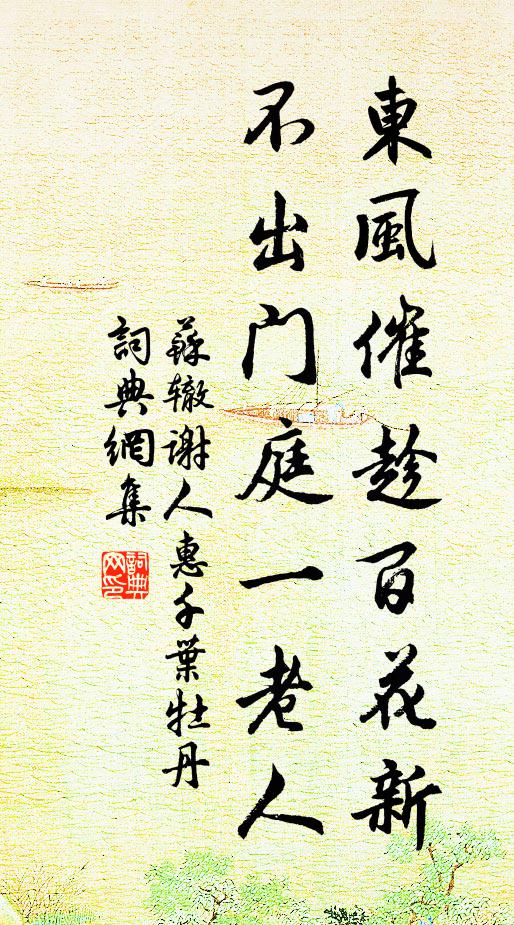 東風催趁百花新
不出門庭一老人
蘇轍謝人惠千葉牡丹
詞典網集
詞典网印